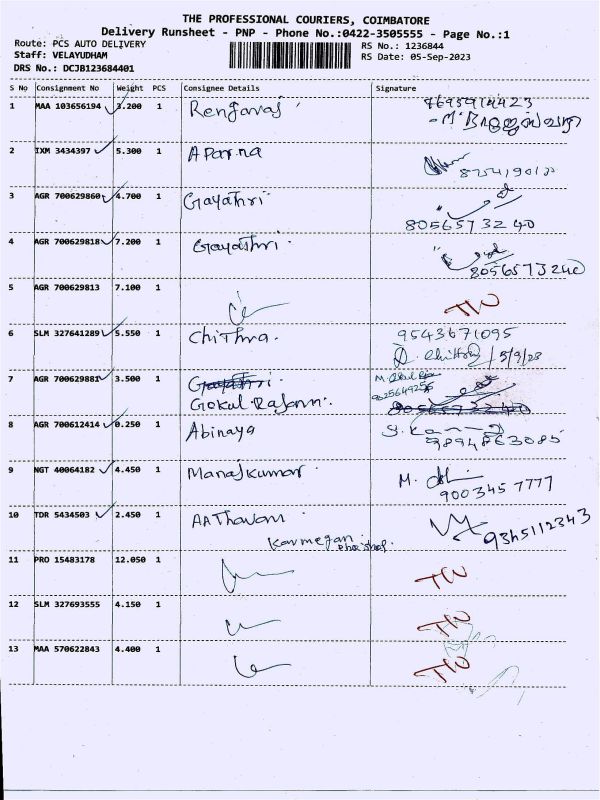 THE PROFESSIONAL COURIERS, COIMBATORE
Delivery Runsheet - PNP - Phone No.:0422-3505555 - Page No.:1
Route: PCS AUTO DELIVERY
RS No.: 1236844
Staff: VELAYUDHAM
RS Date: 05-Sep-2023
DRS No.: DCJB123684401
S No Consignment No Weight PCS Consignee Details Signature
1 MAA 103656194 3.200 1
2 IXM 3434397 5.300 1 Aparna
3 AGR 700629860 4.700 1 Gayathri
8056573240
4 AGR 700629818 7.200 1 Gayathri
8056573240
5 AGR 700629813 7.100 1
6 SLM 327641289 5.550 1 Chithra. 9543671095
5/9/23
7 AGR 700629881 3.500 1 Gayathri.
Gokul
8 AGR 700612414 0.250 1 Abinaya
9894863085
9 NGT 40064182 4.450 1 Manojkumar M.
9003457777
10 TDR 5434503 2.450 1
9345112343
11 PRO 15483178 12.050 1
12 SLM 327693555 4.150 1
13 MAA 570622843 4.400 1